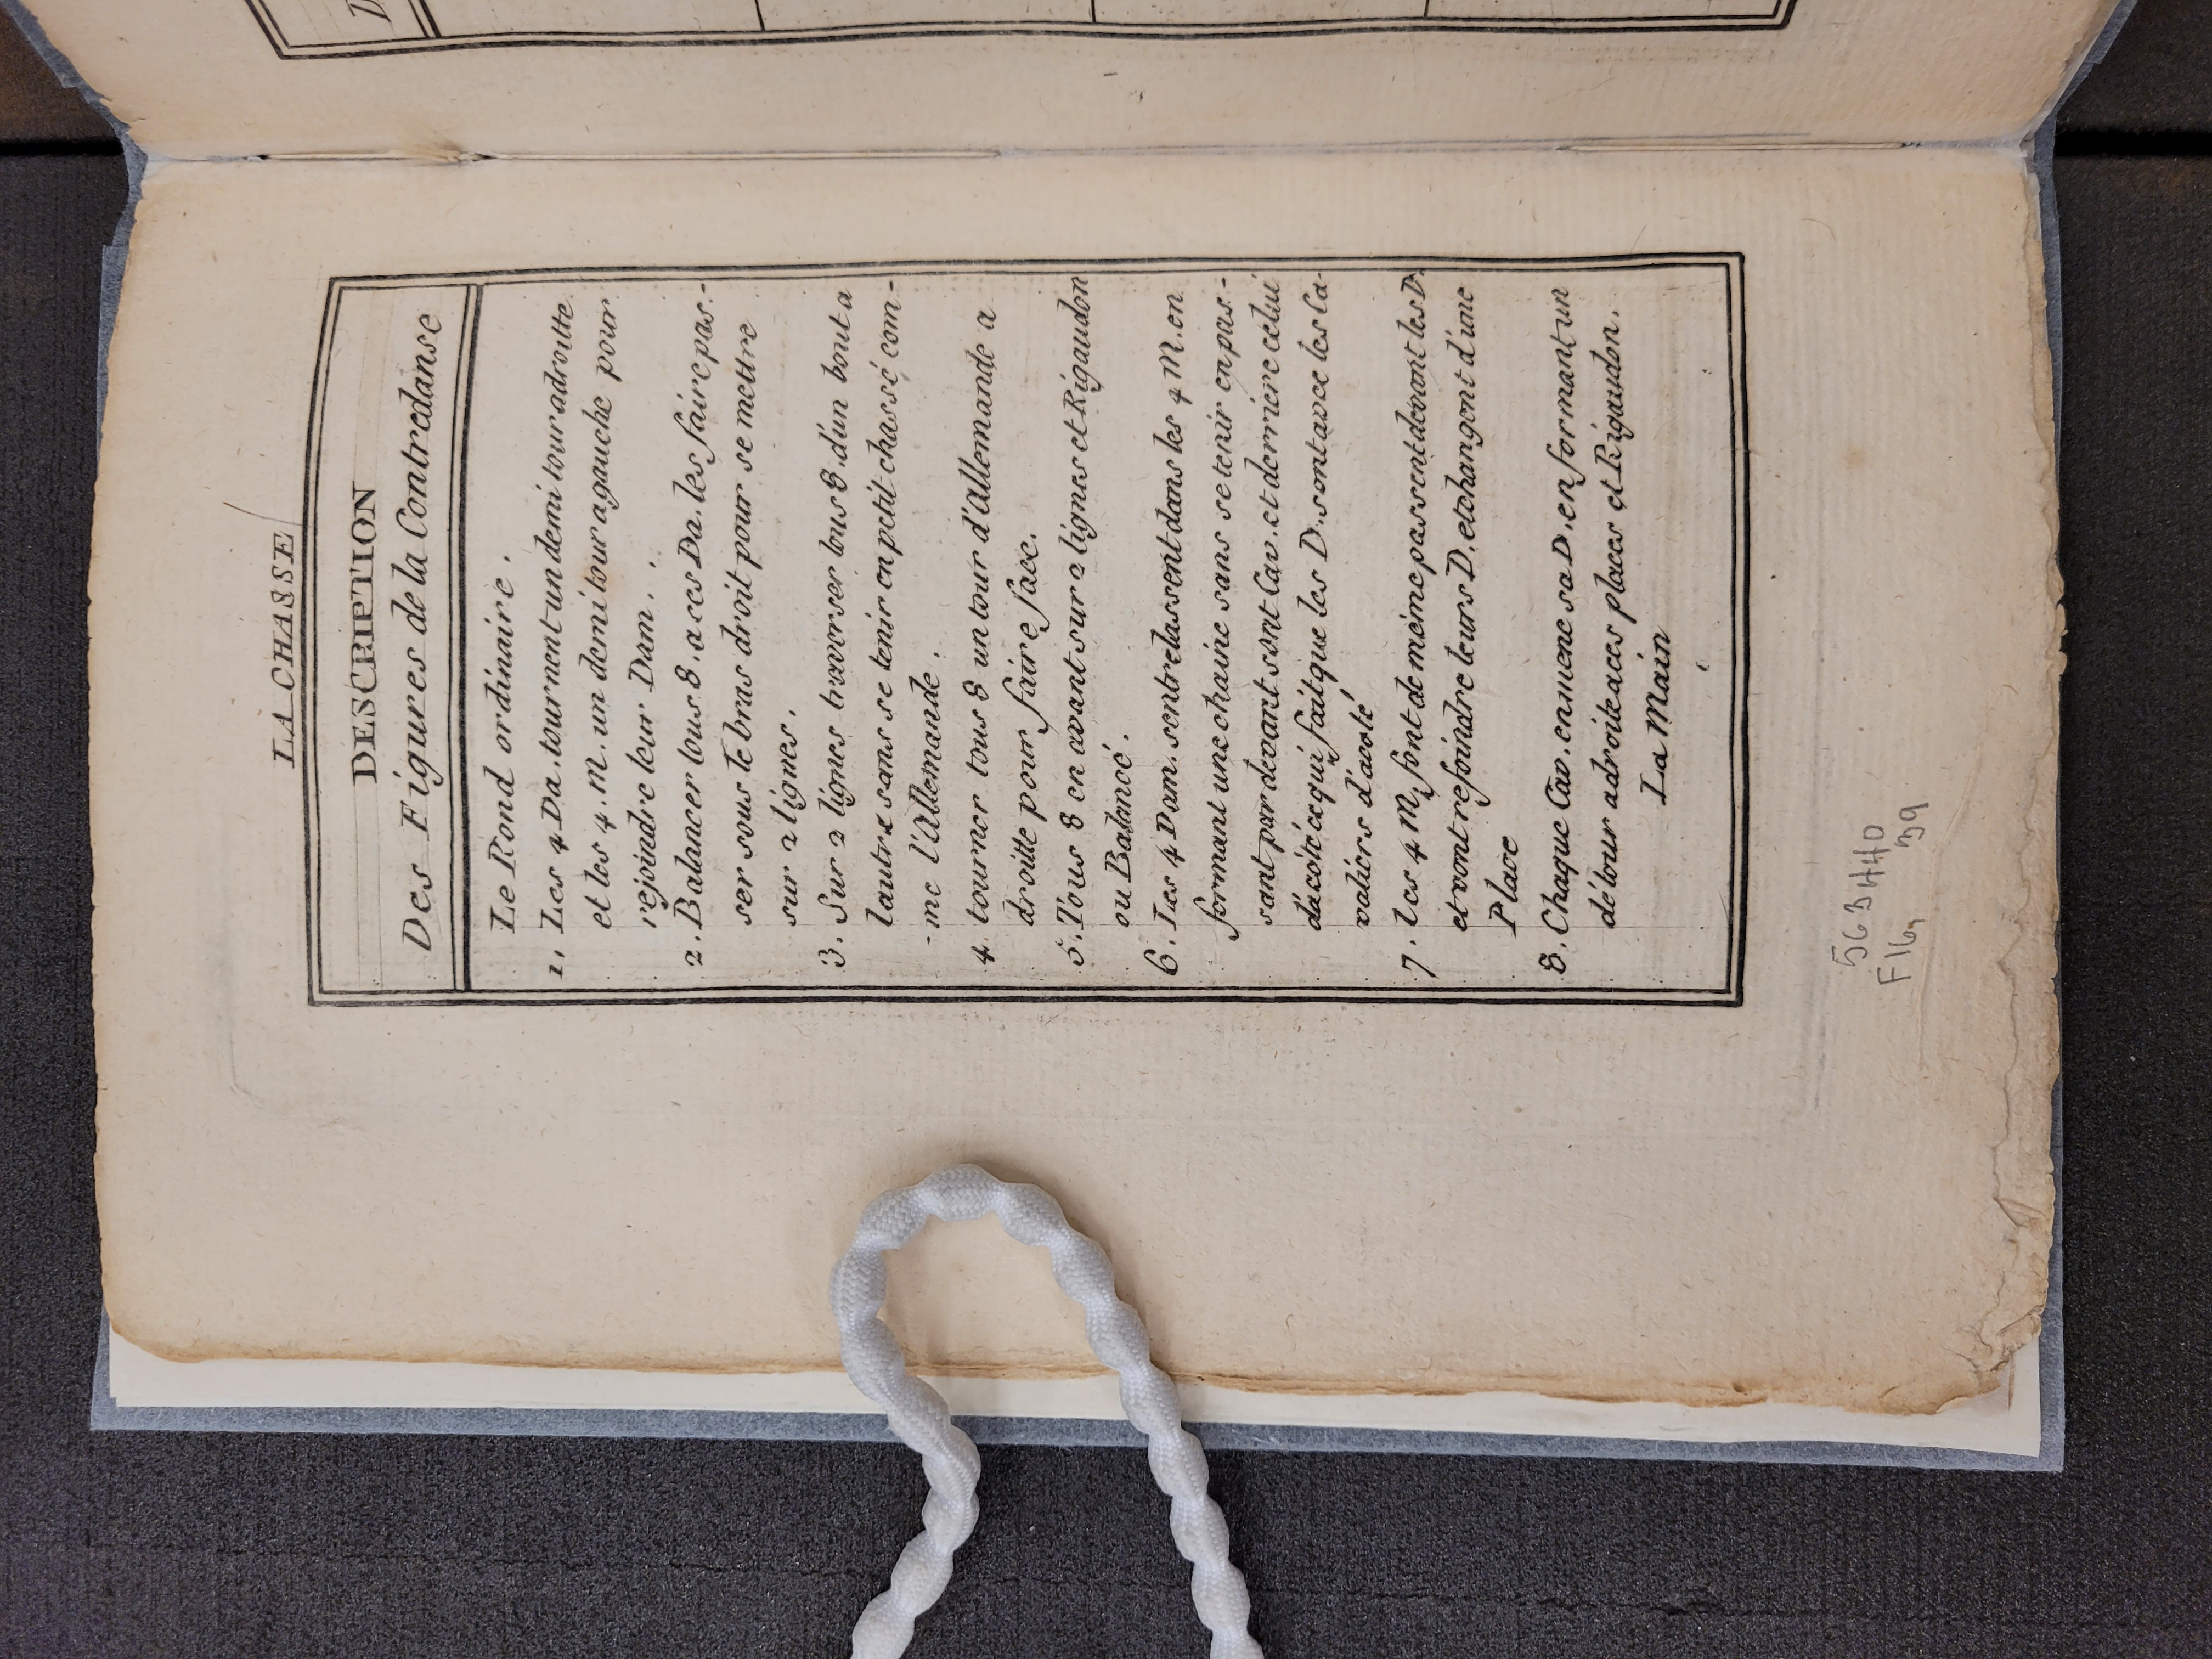 LA CHASSE
DESCRIPTION
Des Figures de la Contredanse
Le Rond ordinaire.
1, Les 4 Da. tournent un demi tour adroitte
et les 4. M. un demi tour agauche pour
rejoindre leur Dam.
2. Balancer tous 8. a ces Da. les faire pas-
ser sous le bras droit pour se mettre
sur 2 lignes.
3. Sur 2 lignes traverser tous 8. d'un bout a
lautre sans se tenir en petit chassé com-
-me l'Allemande.
4. tourner tous 8 un tour d'allemande a
droitte pour faire face.
5. Tous 8 en avant sur 2 lignes et Rigaudon
ou Balancé.
6. Les 4 Dam. sentrelassent dans les 4 M. en
formant une chaine sans se tenir en pas-
sant par devant sont Cav. et derriere celui
dacoté ce qui fait que les D. sont avec les Ca-
valiers d'acoté
7. les 4 M, font de même passent devant les D.
et vont rejoindre leurs D. et changent d'une
Place
8. Chaque Cav. enmene sa D. en formant un
détour adroite a ces places et Rigaudon.
La Main
56B3440
F16, B9